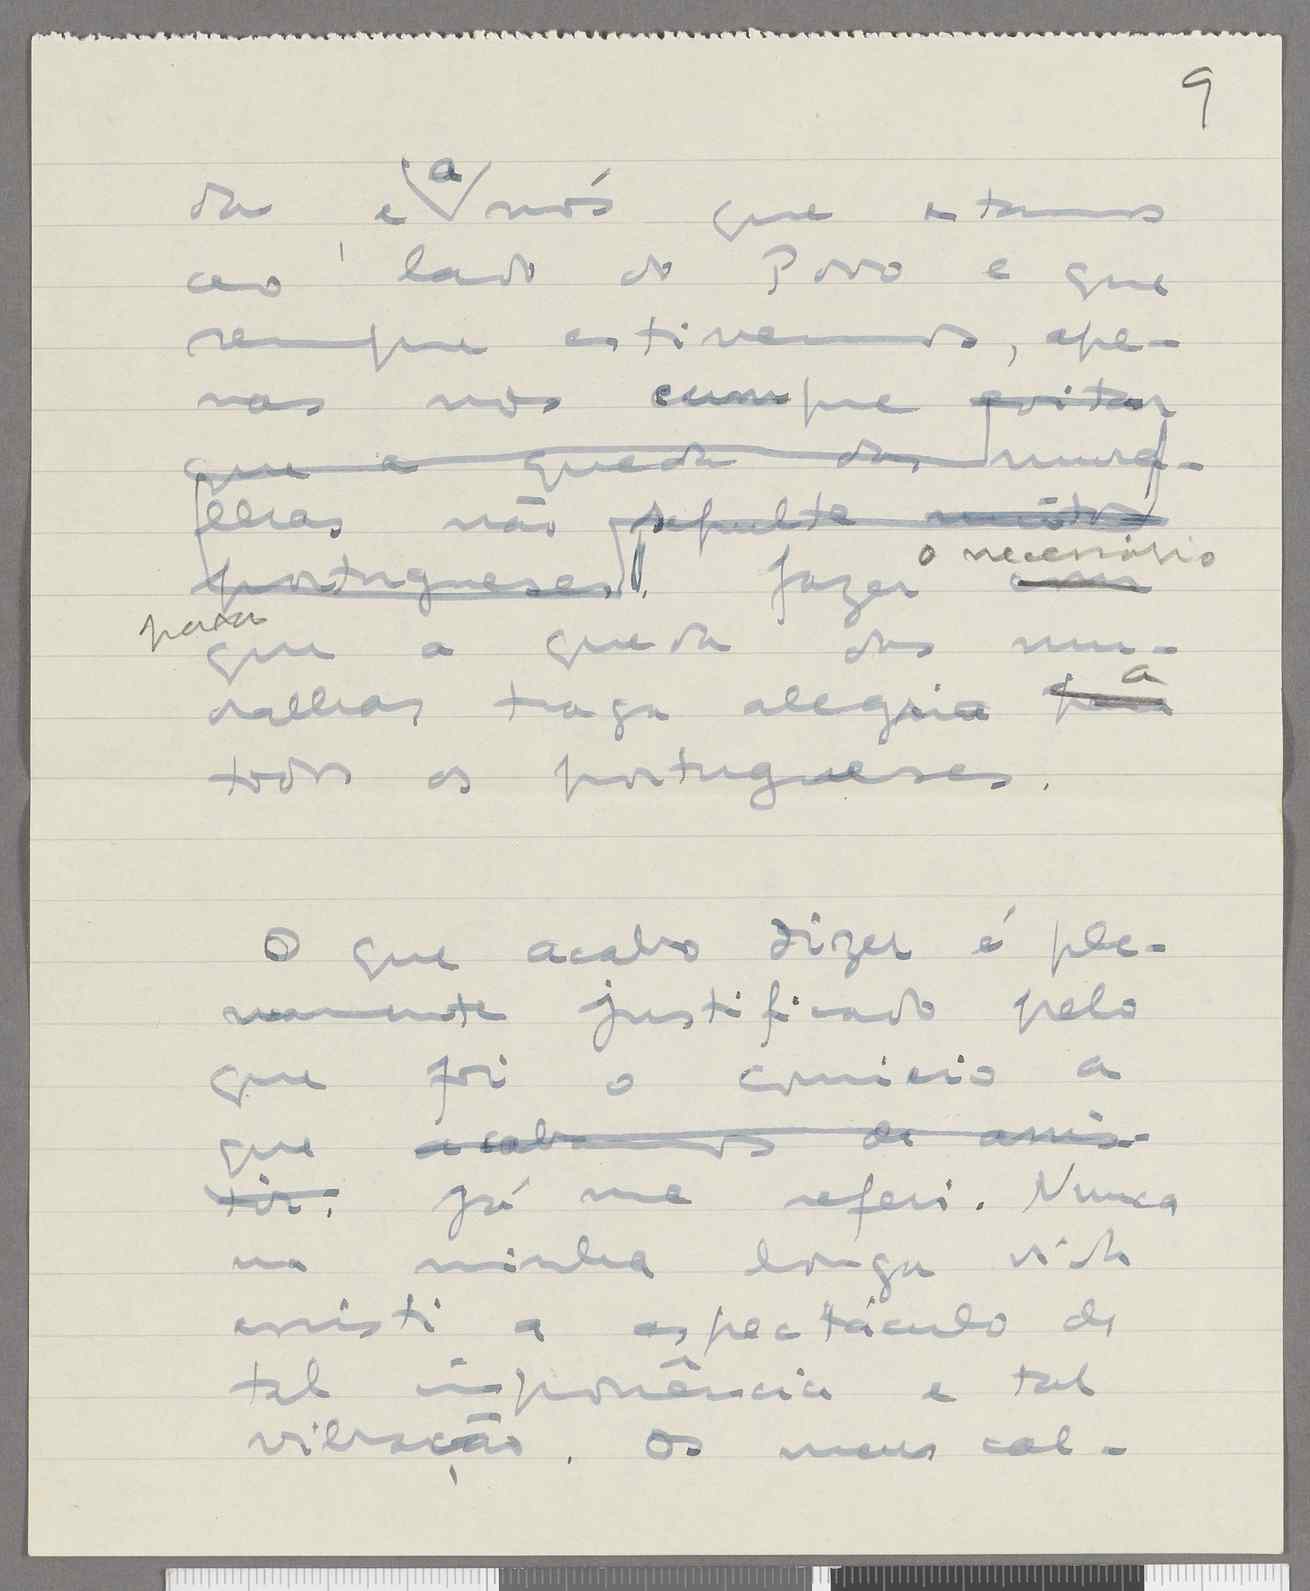 9
da e a nós que estamos
ao lado do Povo e que
sempre estivemos, ape-
nas nos cumpre evitar
que a queda das mura-
lhas não sepulte muitos
portugueses. fazer com o necessário
para que a queda das mu-
ralhas traga alegria para a
todos os portugueses.
O que acabo dizer é ple-
namente justificado pelo
que foi o comicio a
que acabamos de assis-
tir. já me referi. Nunca
na minha longa vida
assisti a espectáculo de
tal imponência e tal
vibração. Os meus cal-